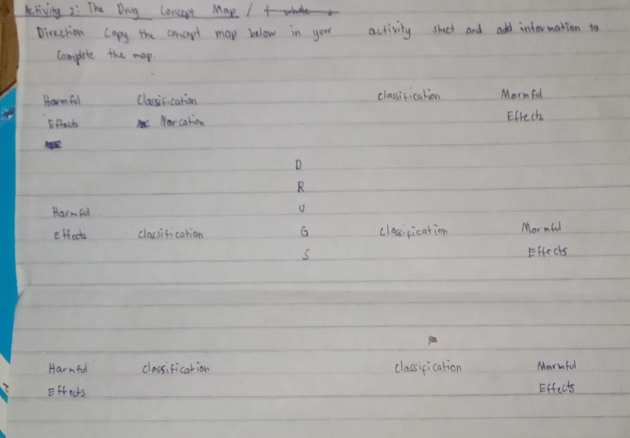 Activity 2: The Drug Concept Map /
Direction Copy the concept map below in your activity sheet and add information to
Complete the map.
Harmful Classification classification Marmful
Effects Narcation Effects
D
R
Harmful U
Effects classification G classipication Marmful
S Effects
Harmful classification classipication Marmful
Effects Effects